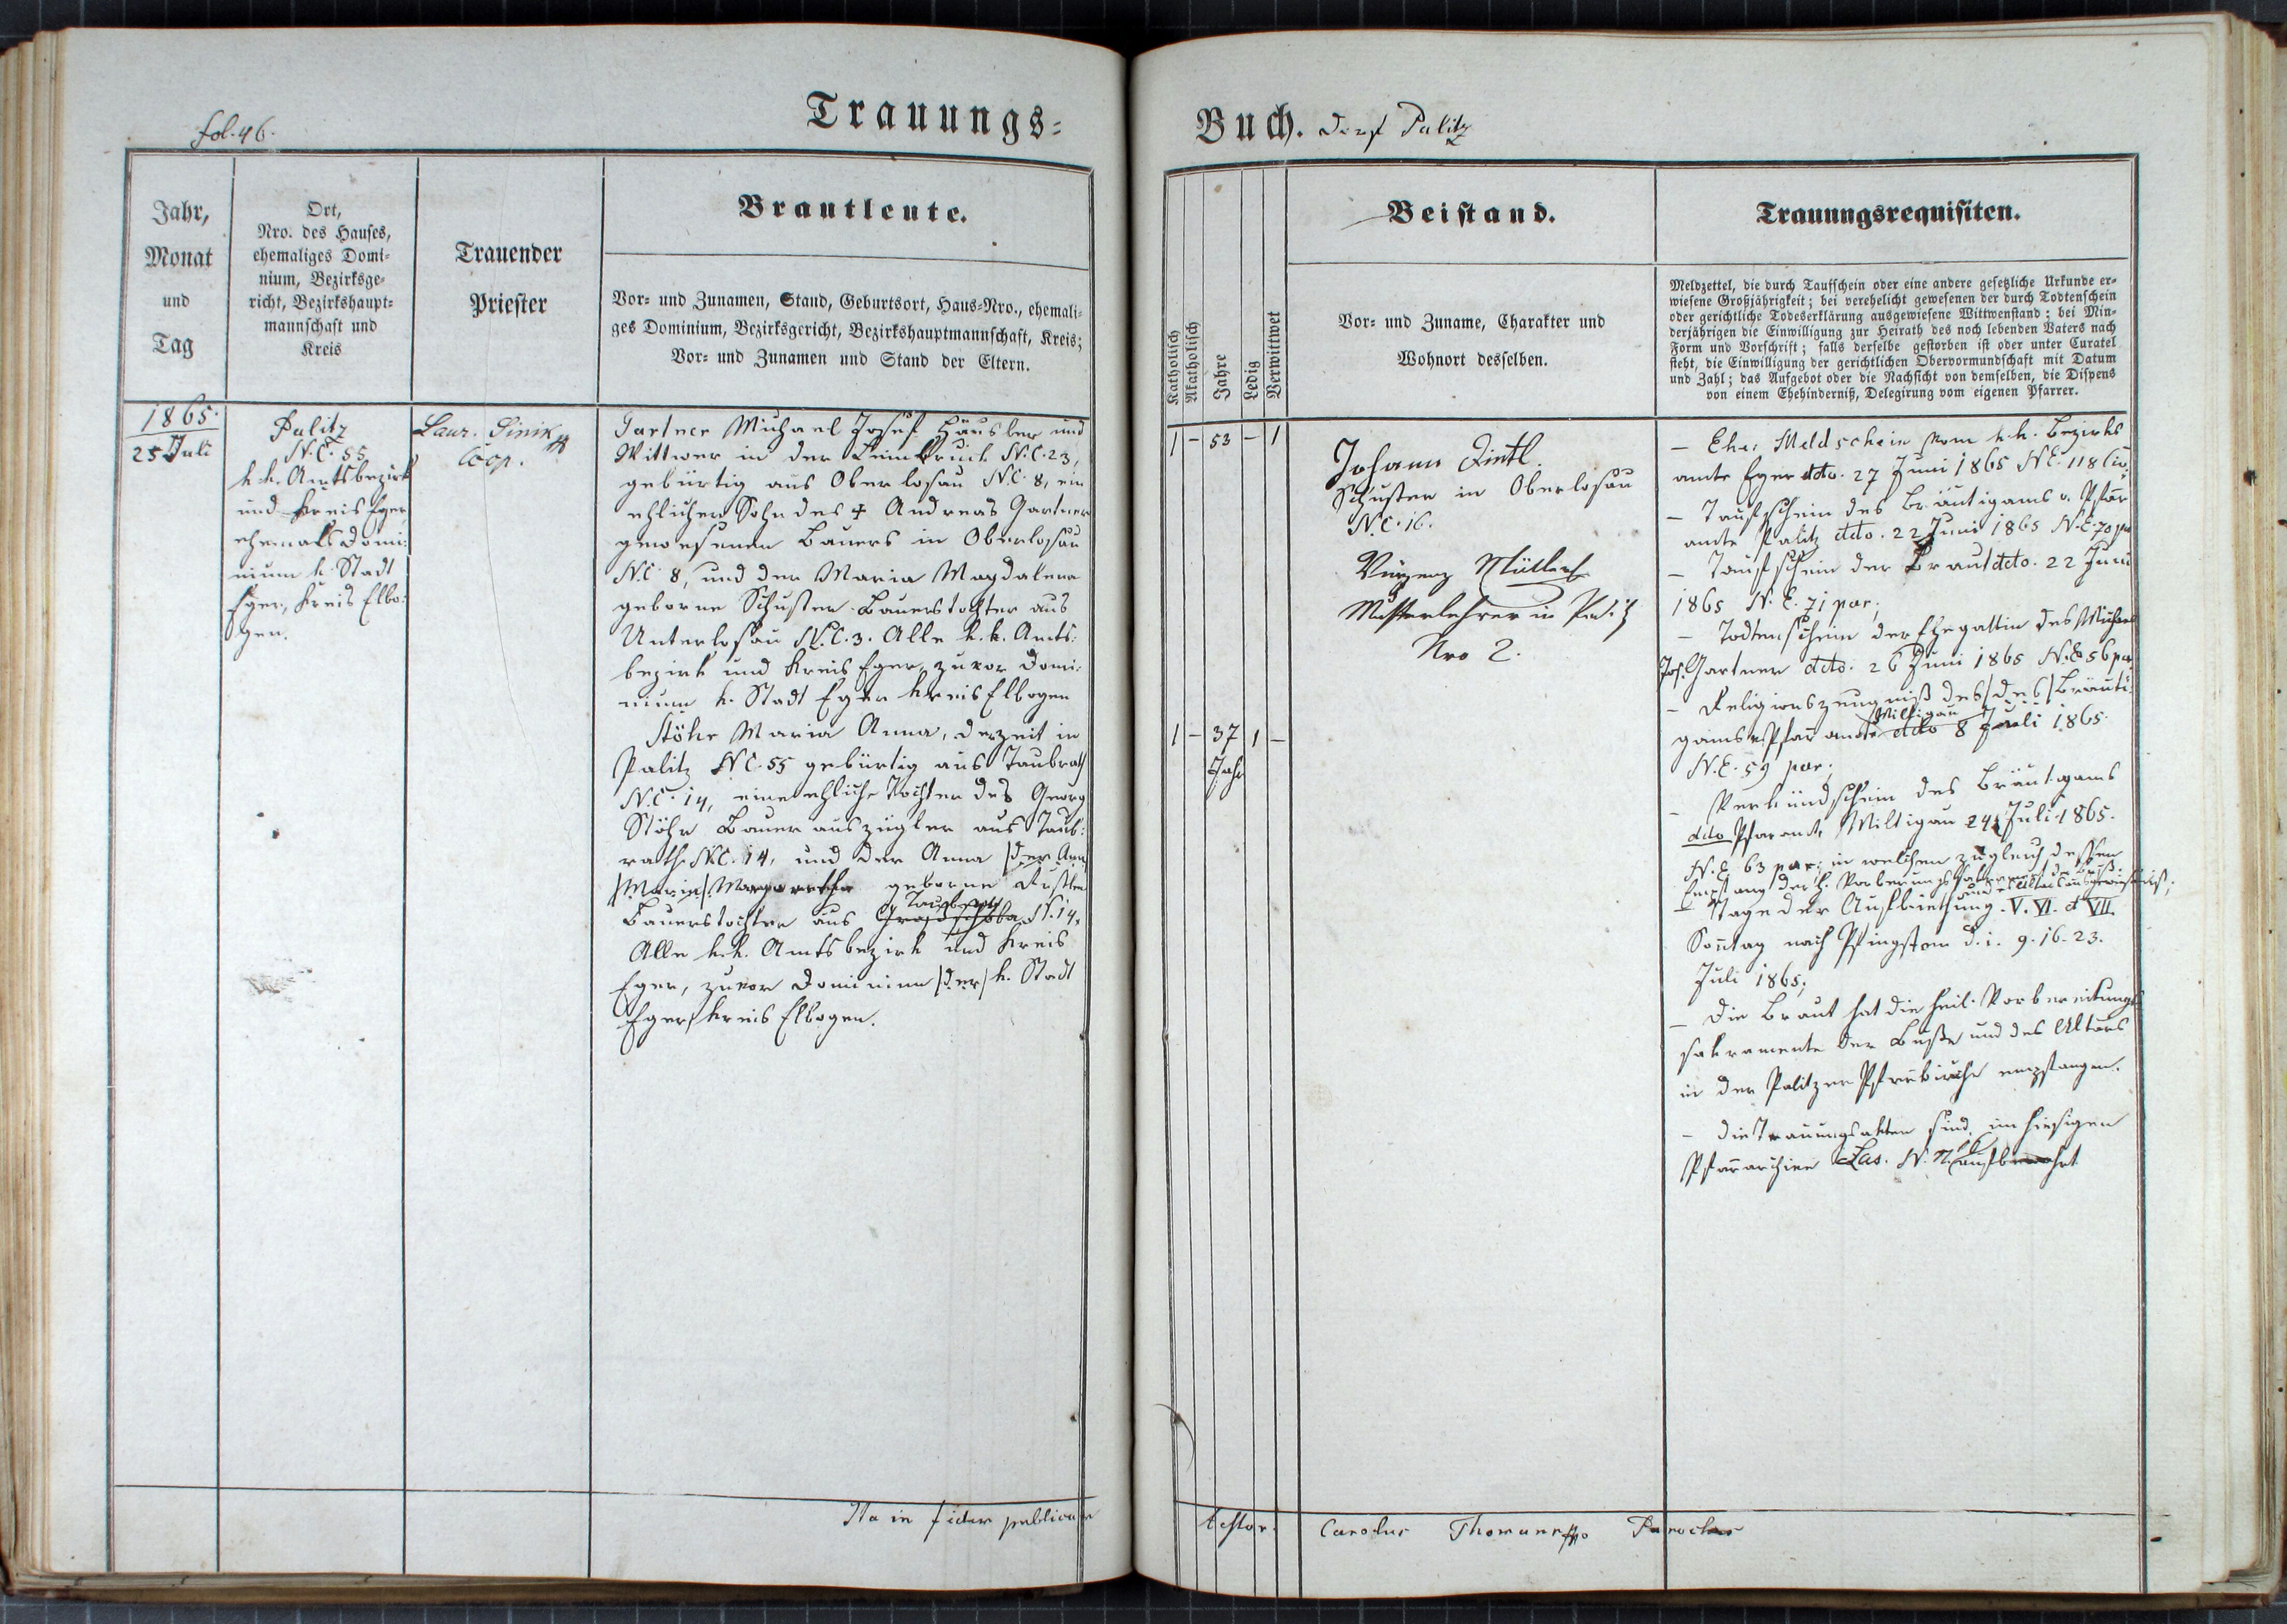 fol. 46.
Trauungs=
Jahr,
Monat
und
Tag
Ort,
Nro. des Hauses,
ehemaliges Domi-
nium, Bezirksge-
richt, Bezirkshaupt-
mannschaft und
Kreis
Trauender
Priester
Brautleute.
Vor- und Zunamen, Stand, Geburtsort, Haus-Nro., ehemali-
ges Dominium, Bezirksgericht, Bezirkshauptmannschaft, Kreis;
Vor- und Zunamen und Stand der Eltern.
1865.
25 Juli
Palitz
N.C. 55
k.k. Amtsbezirk
und Kreis Eger,
ehemals Domi-
nium k. Stadt
Eger, Kreis Elbo-
gen.
Laur. Sinik
Coop.
Gartner Michael Josef Häusler und
Wittwer in der Leimbruck N.C. 23,
gebürtig aus Oberlosau N.C. 8, ein
ehlicher Sohn des † Andreas Gartner
gewesenen Bauers in Oberlosau
N.C 8, und der Maria Magdalena
geborne Schuster Bauerstochter aus
Unterlosau N.C. 3. Alle k.k. Amts-
bezirk und Kreis Eger, zuvor Domi-
nium k. Stadt Eger Kreis Elbogen
Stöhr Maria Anna, derzeit in
Palitz N C. 55 gebürtig aus Taubrath
N.C. 14, eine ehliche Tochter des Georg
Stöhr Bauer auszügler aus Taub-
rath N.C. 14, und der Anna /der Ann/
/Maria/ Margaretha geborne
Taubrath
Bauerstochter aus N. 14,
Alle k.k. Amtsbezirk und Kreis
Eger, zuvor Dominium /der/ k. Stadt
Eger, Kreis Elbogen.
Ita in fidem publicam
Buch. Dorf Palitz
Katholisch
Akatholisch
Jahre
Ledig
Verwittwet
Beistand.
Vor- und Zuname, Charakter und
Wohnort desselben.
Trauungsrequisiten.
Meldzettel, die durch Taufschein oder eine andere gesetzliche Urkunde er-
wiesene Großjährigkeit; bei verehelicht gewesenen der durch Todtenschein
oder gerichtliche Todeserklärung ausgewiesene Wittwenstand; bei Min-
derjährigen die Einwilligung zur Heirath des noch lebenden Vaters nach
Form und Vorschrift; falls derselbe gestorben ist oder unter Curatel
steht, die Einwilligung der gerichtlichen Obervormundschaft mit Datum
und Zahl; das Aufgebot oder die Nachsicht von demselben, die Dispens
von einem Ehehinderniß, Delegirung vom eigenen Pfarrer.
1 – 53 – 1
1 – 37 1 –
Jahr
Johann Zintl
Schuster in Oberlosau
N.C. 16.
Vinzenz Müller
Musterlehrer in Palitz
Nro 2.
– Ehe Meldschein vom k.k. Bezirks
amte Eger dto. 27 Juni 1865 N.E. 118
– Taufschein des Bräutigams v. Pfar
amte Palitz dto. 22 Juni 1865 N.E. 70 par
– Taufschein der Braut dto. 22 Juni
1865 N.E. 71 par;
– Todtenschein der Ehegattin des Michael
Jos. Gartner dto. 26 Juni 1865 N.E. 56 par
– Religionszeugniß des /des/ Bräuti-
Miltigau
gams v. Pfaramte dto 8 Juli 1865.
N.E. 59 par;
– Verkündschein des Bräutigams
dto Pfaramte Miltigau 24 Juli 1865.
N.E. 63 par; in welchem zugleich dessen
Empfang der h. Vorbereitungssakramente der Buße
und des Altars ausgewiesen ist;
– Tage der Aufbiethung. V. VI. et VII.
Sonntag nach Pfingsten d. i. 9. 16. 23.
Juli 1865;
– Die Braut hat die heil. Vorbereitungs
sakramente der Buße und des Altars
in der Palitzer Pfarrkirche empfangen.
– die Trauungsakten sind im hiesigen
Pfararchive Fas. N. aufbewahrt
testor. Carolus Thomann Parochus